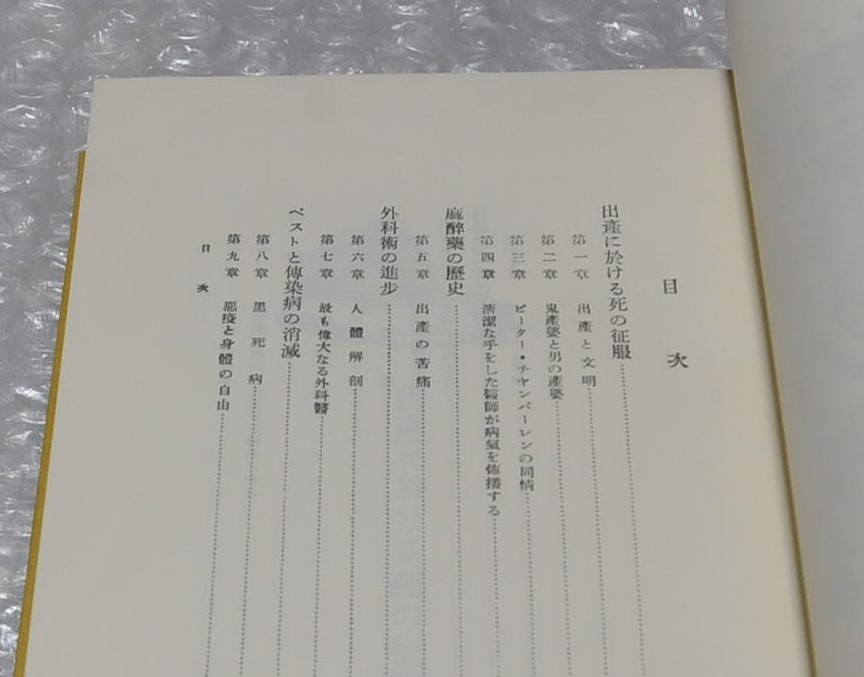 目次
出產に於ける死の征服
第一章 出產と文明
第二章 鬼產婆と男の產婆
第三章 ピーター・チヤンバーレンの同情
第四章 淸潔な手をした醫師が病氣を傳播する
麻醉藥の歷史
第五章 出產の苦痛
外科術の進步
第六章 人體解剖
第七章 最も偉大なる外科醫
ペストと傳染病の消滅
第八章 黑死病
第九章 惡疫と身體の自由
目次